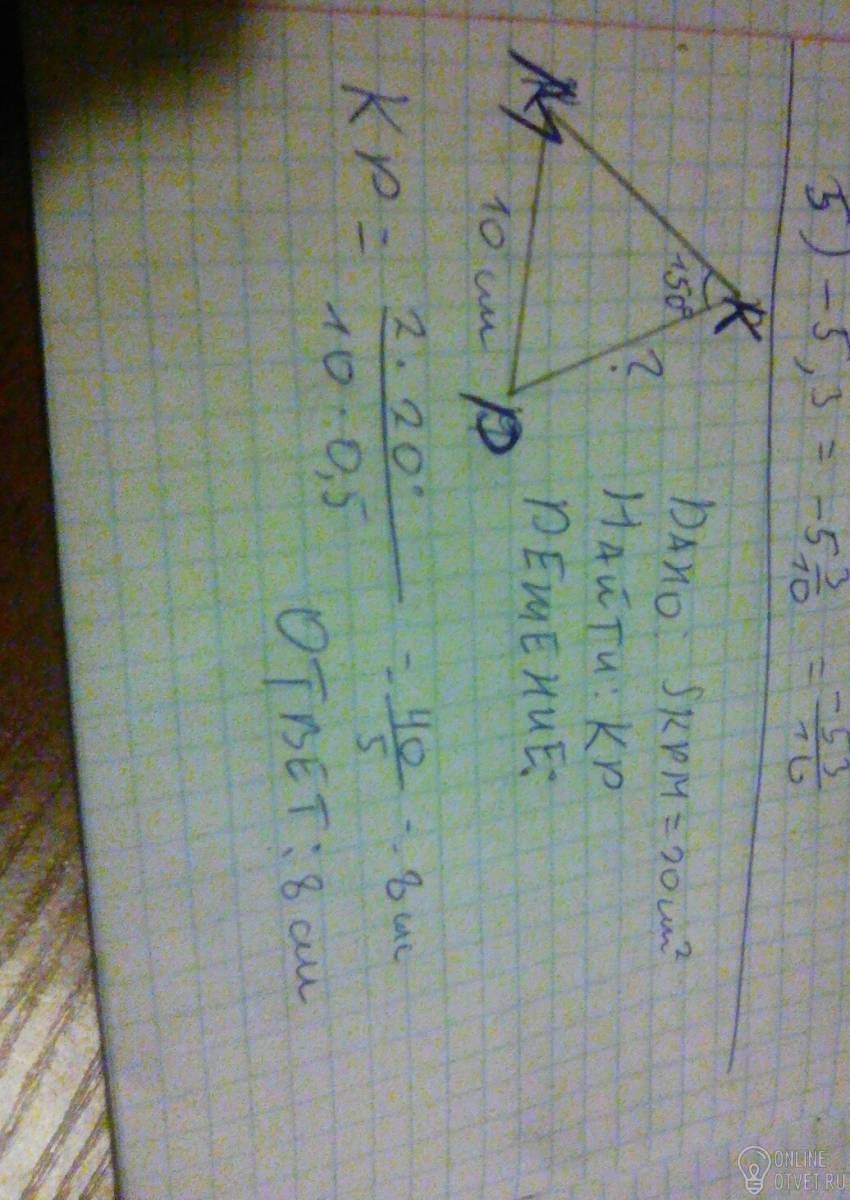 5) -5,3 = -5 3/10 = -53/10
K
150°
?
10 см
P
ДАНО: SKPM = 20 см²
НАЙТИ: KP
РЕШЕНИЕ:
KP = 2·20/10·0,5 = 40/5 = 8 см
ОТВЕТ: 8 см
ONLINE
OTVET.RU